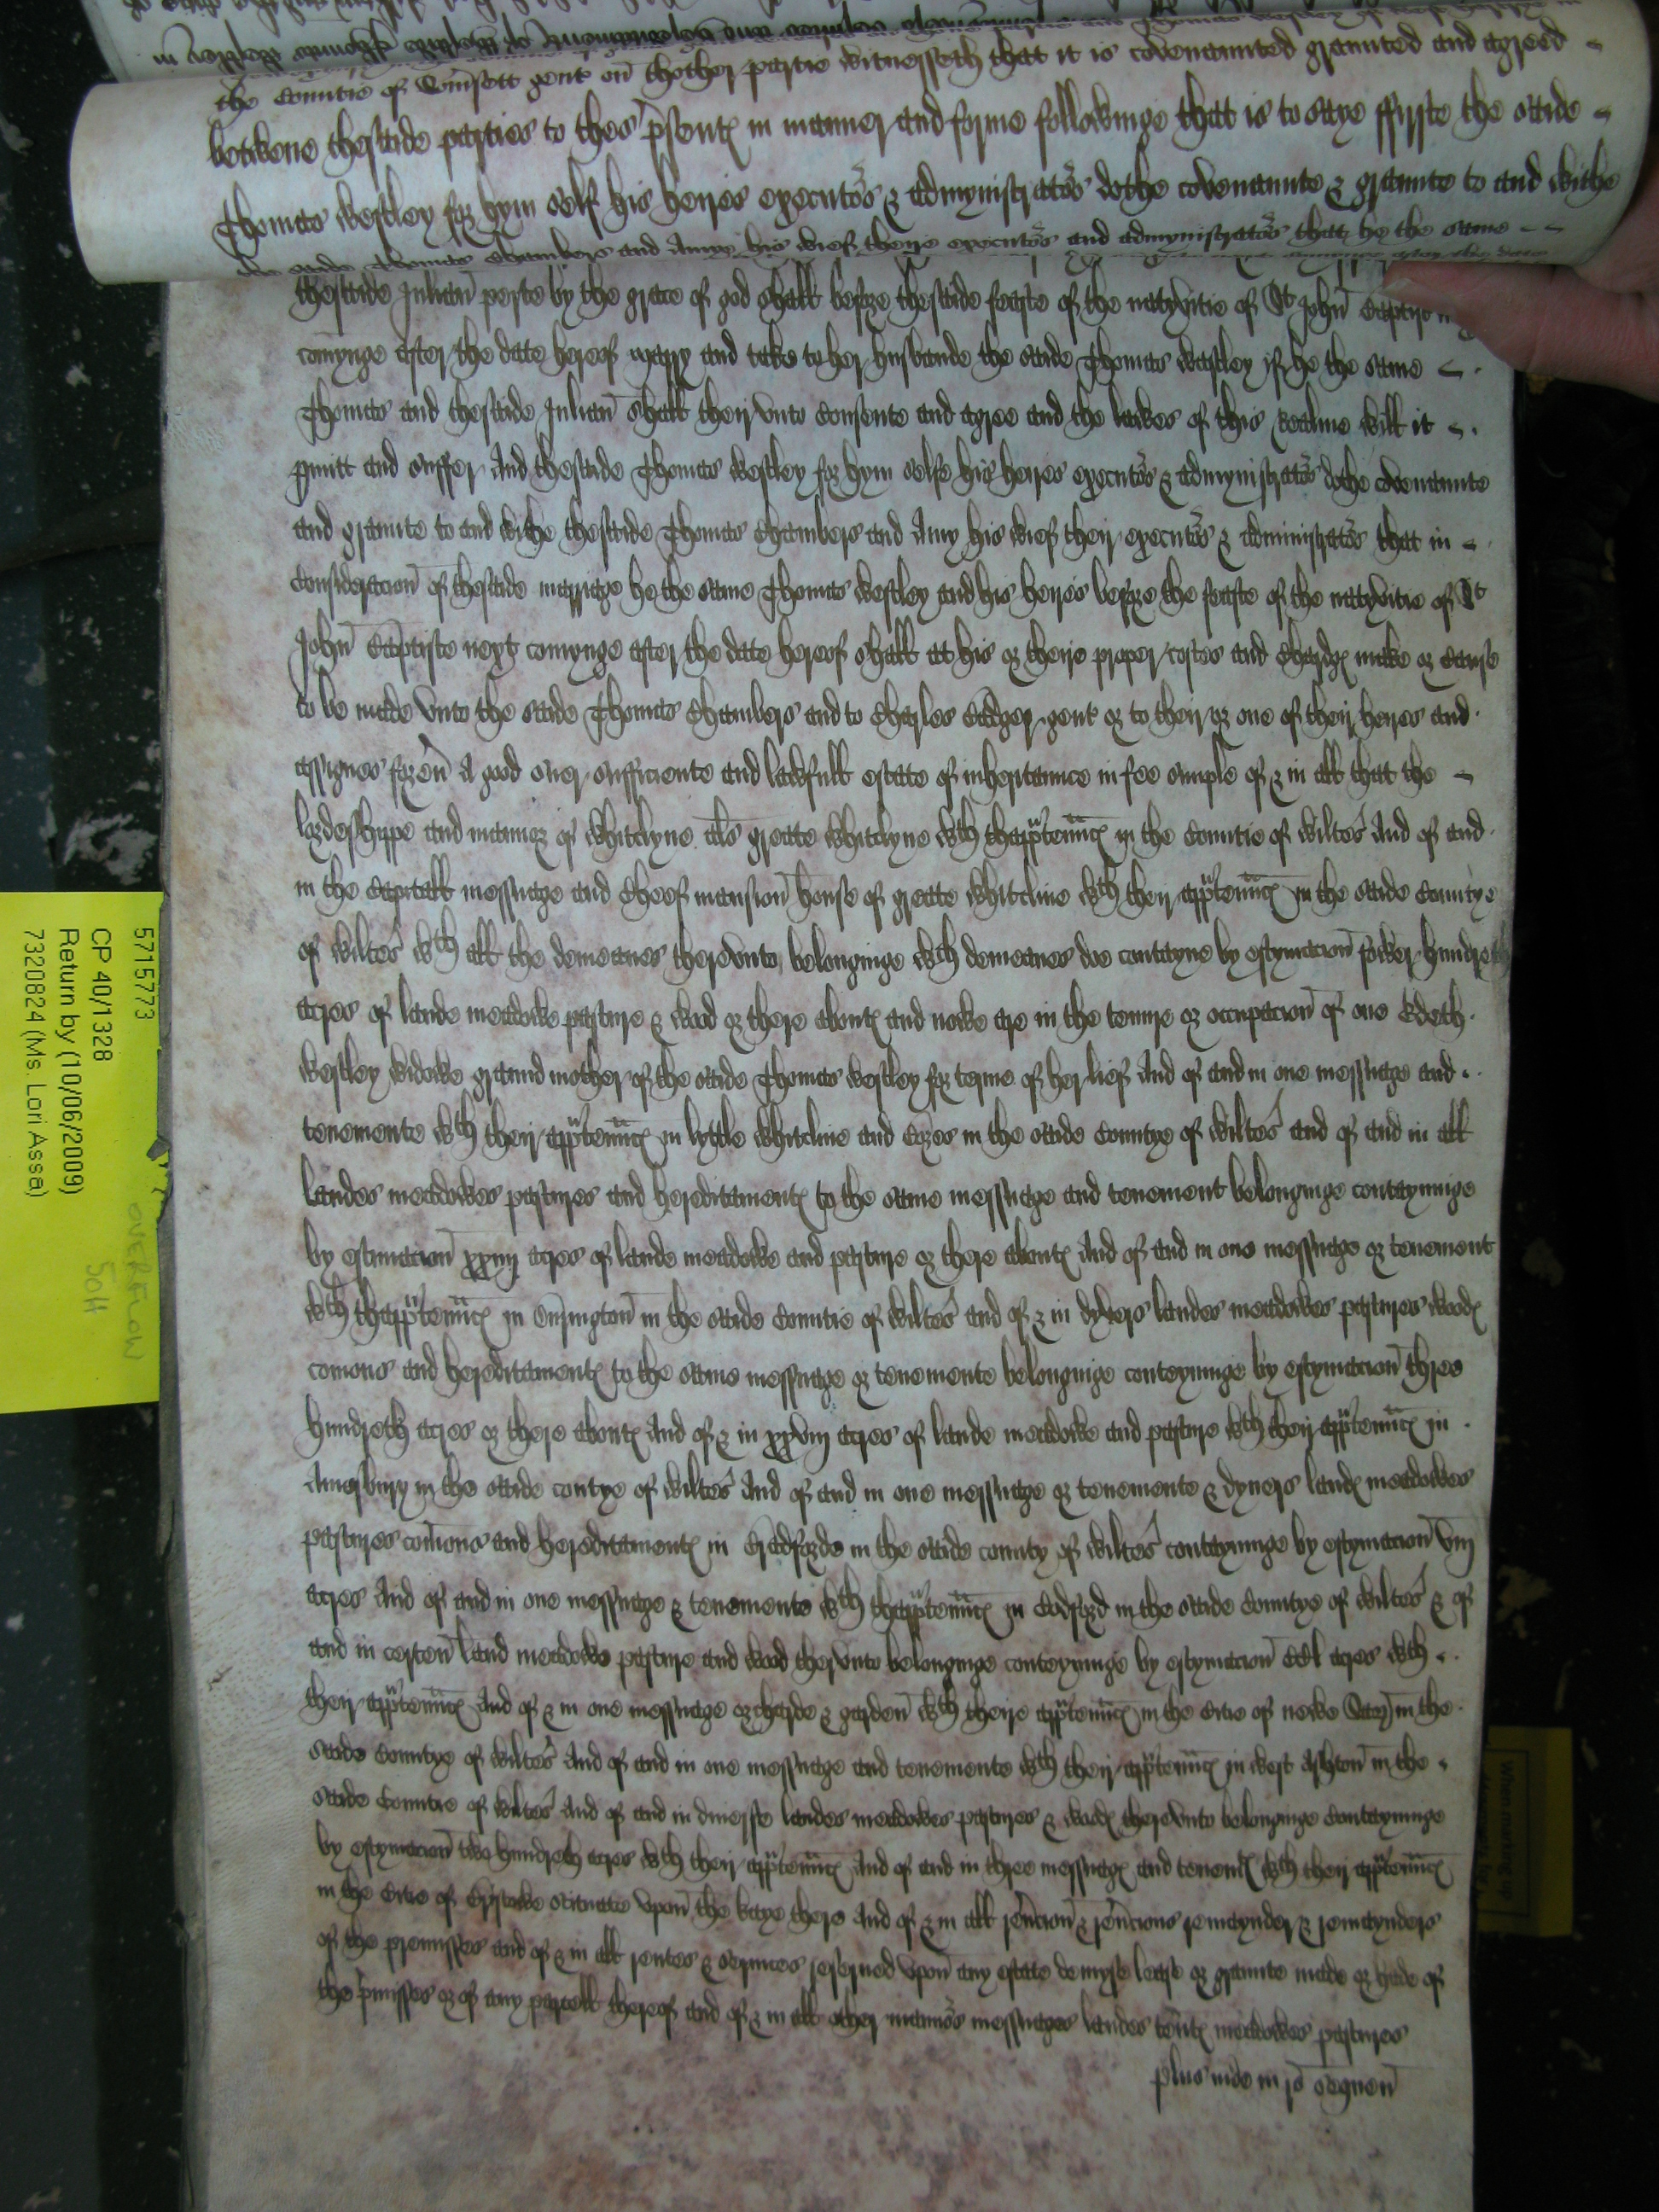 the Countie of Som̃sett gent on thother partie witnesseth that it is covenaunted graunted and agreed
betwene thesaide parties to thes p̃sentꝭ in manner and forme followinge that is to saye ffyrste the saide
Thomas Westley for hym self his heires executoͬs & admynistratoͬs dothe covenaunte & graunte to and withe
the saide Thomas Chambers and Amye his wief theire executoͬs and admynistratoͬs that he the same
thesaide Julian̄ by the grace of god shall before thesaide feaste of the natyvitie of St John̄ Baptist
comynge after the date hereof marry and take to her husbande the saide Thomas Westley if he the same
Thomas and thesaide Julian̄ shall their vnto Consente and agree and the lawes of this realme will it
p̱mitt and suffer And thesaide Thomas Westley for hym selfe his heires executoͬs & admynistratoͬs dothe covenaunte
and graunte to and withe thesaide Thomas Chambers and Amy his wief their executoͬs & administratoͬs that in
Consideracion̄ of thesaide marriage he the same Thomas Westley and his heires before the feaste of the natyvitie of St
John̄ Baptiste next comynge after the date hereof shall at his or theire proper costes and Chardgꝭ make or Cause
to be made vnto the saide Thomas Chambers and to Charles gent or to their or one of their heires and
assignes A good suer sufficiente and lawfull estate of inheritaunce in fee simple of & in all that the
lordeshippe and mannor of Whitclyne al̄s greate Whitclyne wth thapp̱tenn̄cꝭ in the Countie of Wiltes̃ And of and
in the Capitall messuage and Cheef mansion̄ house of greate Whitcline wth their app̱tenn̄cꝭ in the saide Countye
of Wiltes̃ wth all the demeanes therevnto belonginge wth demeanes doe contayne by estymacion̄ fower hundreth
acres of lande meadowe pasture & wood or there aboutꝭ and nowe are in the tenure or occupacion̄ of one Edeth
Westley widowe graund mother of the saide Thomas Westley for terme of her lief And of and in one messuage and
tenemente wth their app̱tenn̄cꝭ in lyttle Whitcline and in the saide Countye of Wiltes̃ and of and in all
Landes meadowes pastures and hereditamentꝭ to the same messuage and tenement belonginge contaynnige
by estimacion̄ xxiiij acres of lande meadowe and pasture or there aboutꝭ And of and in one messuage or tenement
wth thapp̱tenn̄cꝭ in in the saide Countie of Wiltes̃ and of & in dyvers landes meadowes pastures woodꝭ
comons and hereditamentꝭ to the same messuage or tenemente belonginge conteyninge by estymacion̄ three
hundreth acres or there aboutꝭ And of & in xxviij acres of lande meadowe and pasture wth their app̱tenn̄cꝭ in
Amesbury in the saide contye of Wiltes̃ And of and in one messuage or tenemente & dyuers landꝭ meadowes
pastures com̄ons and hereditamentꝭ in Bradforde in the saide county of Wiltes̃ contayninge by estymacion̄ viij
acres And of and in one messuage & tenemente wth thapp̱tenn̄cꝭ in Codford in the saide Countye of Wiltes̃ & of
and in certen̄ land meadowe pasture and wood thervnto belonginge conteyninge by estymacion̄ CCl acres wth
their app̱tenn̄cꝭ And of & in one messuage orcharde & garden̄ wth theire app̱tenn̄cꝭ in the Citie of newe Sar̃ in the
saide Countye of Wiltes̃ And of and in one messuage and tenemente wth their app̱tenn̄cꝭ in west Ashton̄ in the
saide Countie of Wiltes̃ And of and in diuersse landes meadowes pastures & woodꝭ therevnto belonginge Contayninge
by estymacion̄ two hundreth acres wth their app̱tenn̄cꝭ And of and in three messuagꝭ and tenemtꝭ wth their app̱tenn̄cꝭ
in the Citie of Bristowe scituate vpon̄ the kaye there And of & in all reṽcion̄ & reṽcions remaynder & remaynders
of the premisses and of & in all rentes & seruices reserued vpon̄ any estate demyse lease or graunte made or hade of
the p̃misses or of any parcell thereof and of & in all other manoͬs messuages landes ten̄tꝭ meadowes pastures
plus inde in ro sequen̄
5715773
CP 40/1328
Return by (10/06/2009)
7320824 (Ms. Lori Assa)
OVERFLOW
50H
When marking up